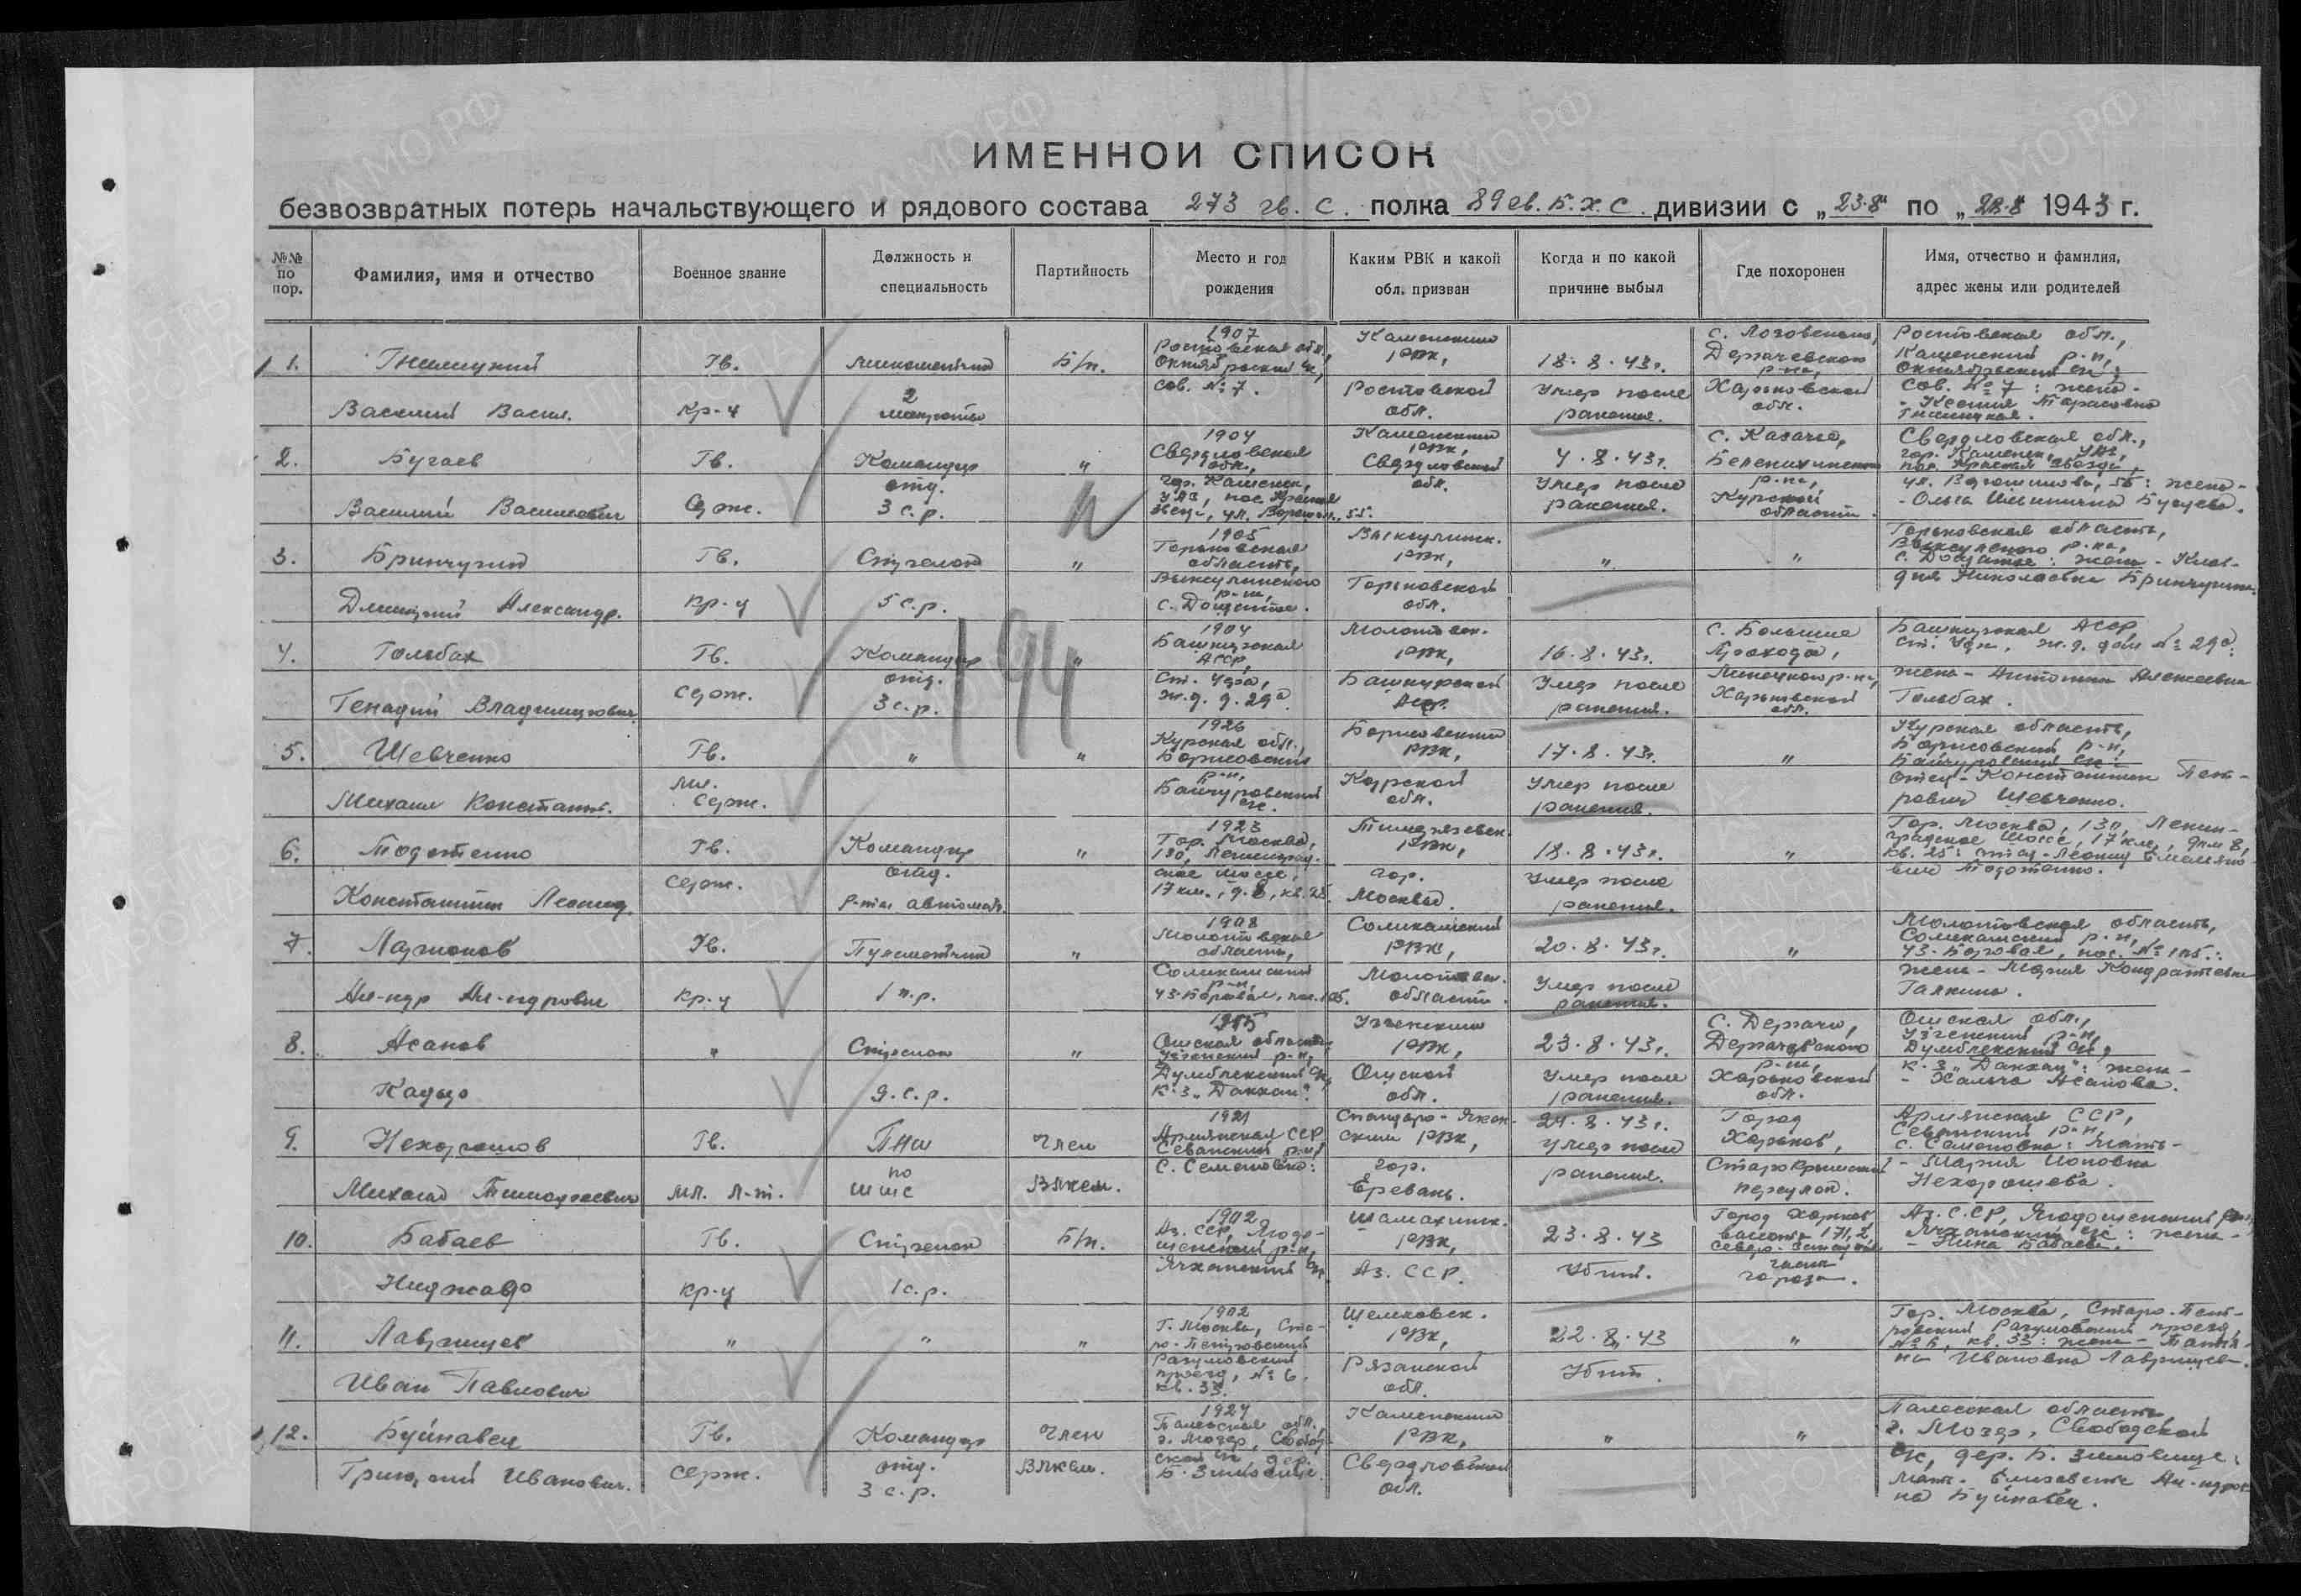 ИМЕННОЙ СПИСОК
безвозвратных потерь начальствующего и рядового состава 273 гв. с. полка 89 гв. Б.Х.С. дивизии с „23.8“ по „28.8“ 1943 г.
№№ по пор.
Фамилия, имя и отчество
Военное звание
Должность и специальность
Партийность
Место и год рождения
Каким РВК и какой обл. призван
Когда и по какой причине выбыл
Где похоронен
Имя, отчество и фамилия, адрес жены или родителей
1.
Василий Васил.
Гв.
кр-ц
минометчик
2 минроты
Б/п.
1907
Ростовская обл.,
Октябрьский с/с,
сов. № 7.
Каменский
РВК,
Ростовской
обл.
18.8.43г.
Умер после
ранения.
с. Лозовеньки,
Дергачевского
р-на,
Харьковской
обл.
Ростовская обл.,
Каменский р-н,
Октябрьский с/с,
сов. № 7: жена -
- Ксения Тарасовна
2.
Бугаев
Василий Васильевич
Гв.
Серж.
Командир
отд.
3 с.р.
"
1904
Свердловская
обл.,
гор. Каменск,
УАЗ, пос. Красная
Каменский
РВК,
Свердловской
обл.
4.8.43г.
Умер после
ранения.
с. Казачье,
Беленихинского
р-на,
Курской
области.
Свердловская обл.,
гор. Каменск, УАЗ,
пос. Красная звезда,
ул. Ворошилова, 55: жена -
- Ольга Бугаева.
3.
Бринчугин
Дмитрий Александр.
Гв.
кр-ц
Стрелок
5 с.р.
"
1905
Горьковская
область,
Выксунского
р-на,
с. Досчатое.
Выксунинск.
РВК,
Горьковской
обл.
"
"
Горьковская область,
Выксунского р-на,
с. Досчатое: жена - Клав-
дия Николаевна Бринчугина.
194
4.
Гольбах
Генадий Владимирович
Гв.
серж.
Командир
отд.
3 с.р.
"
1904
Башкирская
АССР,
ст. Уфа,
ж.д. д. 29а.
Молотовск.
РВК,
Башкирской
АССР.
16.8.43г.
Умер после
ранения.
с. Большие
Проходы,
Липецкого р-на,
Харьковской
обл.
Башкирская АССР
ст. Уфа, ж.д. дом № 29а:
жена - Антонина Алексеевна
Гольбах.
5.
Шевченко
Михаил Констант.
Гв.
мл.
серж.
"
"
1926
Курская обл.,
Борисовский
р-н,
Байцуровский
с/с.
Борисовский
РВК,
Курской
обл.
17.8.43г.
Умер после
ранения.
"
Курская область,
Борисовский р-н,
Байцуровский с/с:
отец - Константин Пет-
рович Шевченко.
6.
Константин Леонид.
Гв.
серж.
Командир
отд.
р-ты автомат.
"
1923
Гор. Москва,
130, Ленинград-
ское шоссе,
17 км., д. 8, кв. 25.
Тимирязевск.
РВК,
гор.
Москва.
18.8.43г.
Умер после
ранения.
"
Гор. Москва, 130, Ленин-
градское шоссе, 17 км., дом 8,
кв. 25: отец - Леонид
7.
Ларионов
Ал-ндр Ал-ндрович
Гв.
кр-ц
Пулеметчик
1 п.р.
"
1908
Молотовская
область,
Соликамский
р-н,
Соликамский
РВК,
Молотовск.
области.
20.8.43г.
Умер после
ранения.
"
Молотовская область,
Соликамский р-н,
пос. № 105:
жена - Мария Кондратьевна
Галкина.
8.
Асанов
Кадыр
"
Стрелок
9.с.р.
"
1915
Ошская область,
Узгенский р-н,
к-з „Данхан“.
Узгенский
РВК,
Ошской
обл.
23.8.43г.
Умер после
ранения.
с. Дергачи,
Дергачевского
р-на,
Харьковской
обл.
Ошская обл.,
Узгенский р-н,
к-з „Данхан“: жена -
- Асанова.
9.
Нехорошов
Михаил Тимофеевич
Гв.
мл. л-т.
ПНШ
по
ШШС
Член
ВЛКСМ.
1921
Армянская ССР
Севанский р-н,
с. Семеновка:
ским РВК,
гор.
Еревань.
24.8.43г.
умер после
ранения.
Город
Харьков,
Старо Крымский
переулок.
Армянская ССР,
Севанский р-н,
с. Семеновка: мать -
- Мария Ионовна
Нехорошева.
10.
Бабаев
Ниджавр
Гв.
кр-ц
Стрелок
1 с.р.
Б/п.
1902
Аз. ССР,
Шамахинск.
РВК,
Аз. ССР.
23.8.43
Убит.
Город Харьков
высота 171,2,
северо-западная
часть
города.
Аз. С.С.Р,
жена -
- Нина Бабаева.
11.
Лаврищев
Иван Павлович
"
"
"
1902
г. Москва, Ста-
ро-Петровский
Разумовский
проезд, № 6.
кв. 33.
РВК,
Рязанской
обл.
22.8.43
Убит.
"
Гор. Москва, Старо-Пет-
ровский Разумовский проезд,
№ 6, кв. 33: жена - Татья-
на Ивановна Лаврищева.
12.
Буйнавец
Григорий Иванович.
Гв.
серж.
Командир
отд.
3 с.р.
Член
ВЛКСМ.
1924
Палесская обл.
г. Мозырь, Свобод-
ской с/с дер.
Б. Зимовище.
Каменский
РВК,
Свердловской
обл.
"
"
Палесская область
г. Мозырь, Свободской
с/с, дер. Б. Зимовище:
мать - Елизавета Ал-ндров-
на Буйнавец.